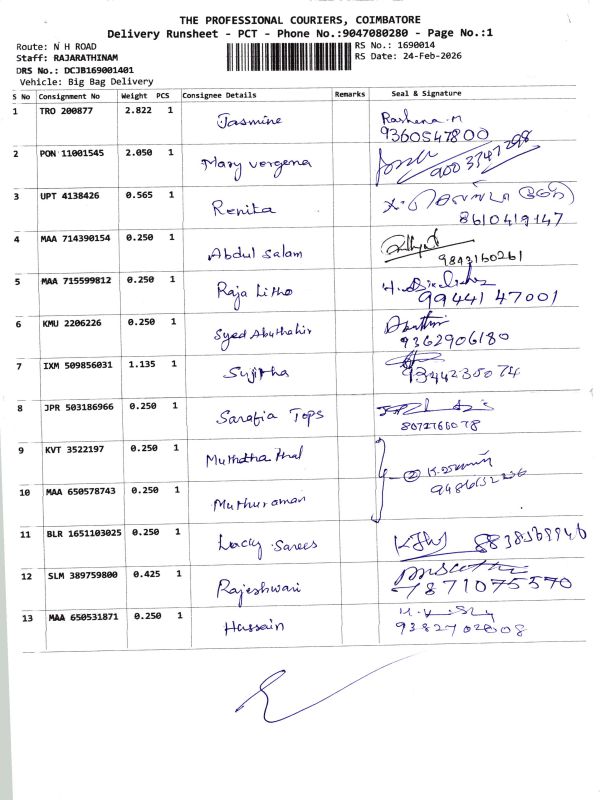 THE PROFESSIONAL COURIERS, COIMBATORE
Delivery Runsheet - PCT - Phone No.:9047080280 - Page No.:1
Route: N H ROAD
RS No.: 1690014
Staff: RAJARATHINAM
RS Date: 24-Feb-2026
DRS No.: DCJB169001401
Vehicle: Big Bag Delivery
S No Consignment No Weight PCS Consignee Details Remarks Seal & Signature
1 TRO 200877 2.822 1 Jasmine Rashena.M
9360547800
2 PON 11001545 2.050 1 Mary vergena 9003347298
3 UPT 4138426 0.565 1 Renita
8610419147
4 MAA 714390154 0.250 1 Abdul Salam
9843160261
5 MAA 715599812 0.250 1 Raja Litho
99441 47001
6 KMU 2206226 0.250 1 Syed Abuthahir
9362906180
7 IXM 509856031 1.135 1 Sujitha
9344235074
8 JPR 503186966 0.250 1 Sarafia Tops
8072766078
9 KVT 3522197 0.250 1 Muthdha Mal
②
10 MAA 650578743 0.250 1 Muthuraman
11 BLR 1651103025 0.250 1 Lacky Sarees 8838569946
12 SLM 389759800 0.425 1 Rajeshwari
7871075570
13 MAA 650531871 0.250 1 Hassain
9382702608